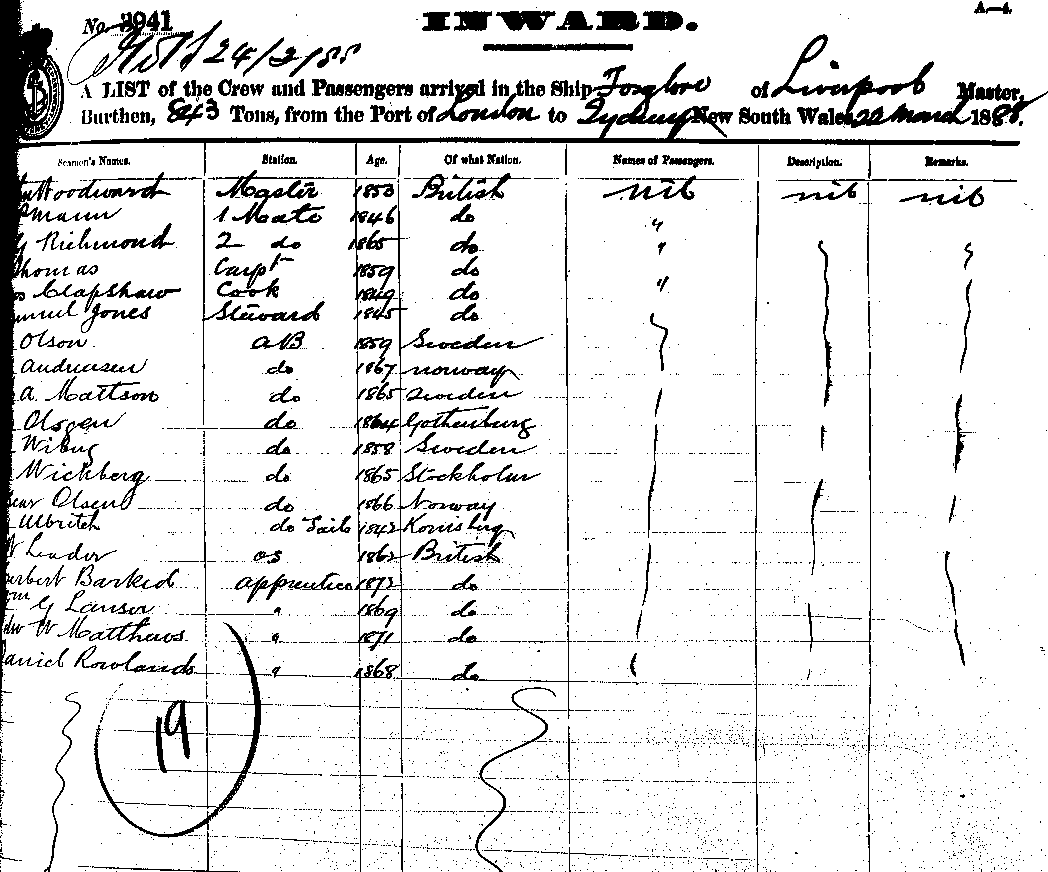 No. 3941 INWARD. A.—4.
24/3/88
A LIST of the Crew and Passengers arrived in the Ship Foxglove of Liverpool Master,
Burthen, 843 Tons, from the Port of London to Sydney New South Wales, 22 March 1888.
Seamen's Names. Station. Age. Of what Nation. Names of Passengers. Description. Remarks.
Woodward Master 1853 British nil nil nil
mann 1 Mate 1846 do "
Richmond 2 do 1865 do "
homas Carpt 1859 do
Clapshaw Cook 1849 do "
muel Jones Steward 1845 do
Olson AB 1859 Sweden
Andreasen do 1867 Norway
A. Mattson do 1865 Sweden
Olsen do 1864 Gothenburg
Wiberg do 1858 Sweden
Wickberg do 1865 Stockholm
Olsen do 1866 Norway
Ulbrich do Sails 1842
Leader OS 1862 British
erbert Barked apprentice 1872 do
G Lanser " 1869 do
W Matthews " 1871 do
aniel Rowlands " 1868 do
19